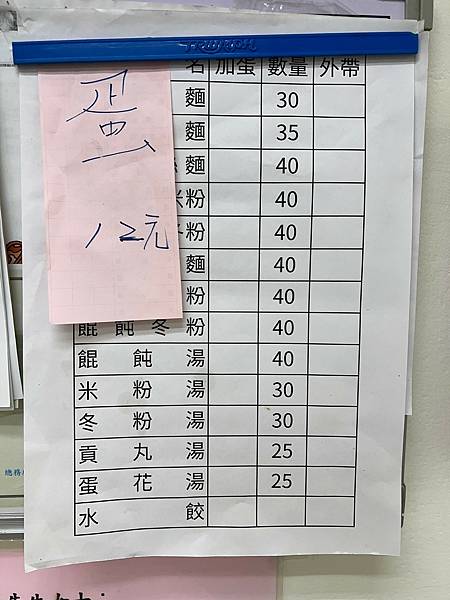 TRIUMPH
蛋
12元
名 加蛋 數量 外帶
麵 30
麵 35
麵 40
米粉 40
粉 40
麵 40
粉 40
餛飩冬粉 40
餛飩湯 40
米粉湯 30
冬粉湯 30
貢丸湯 25
蛋花湯 25
水餃
總務